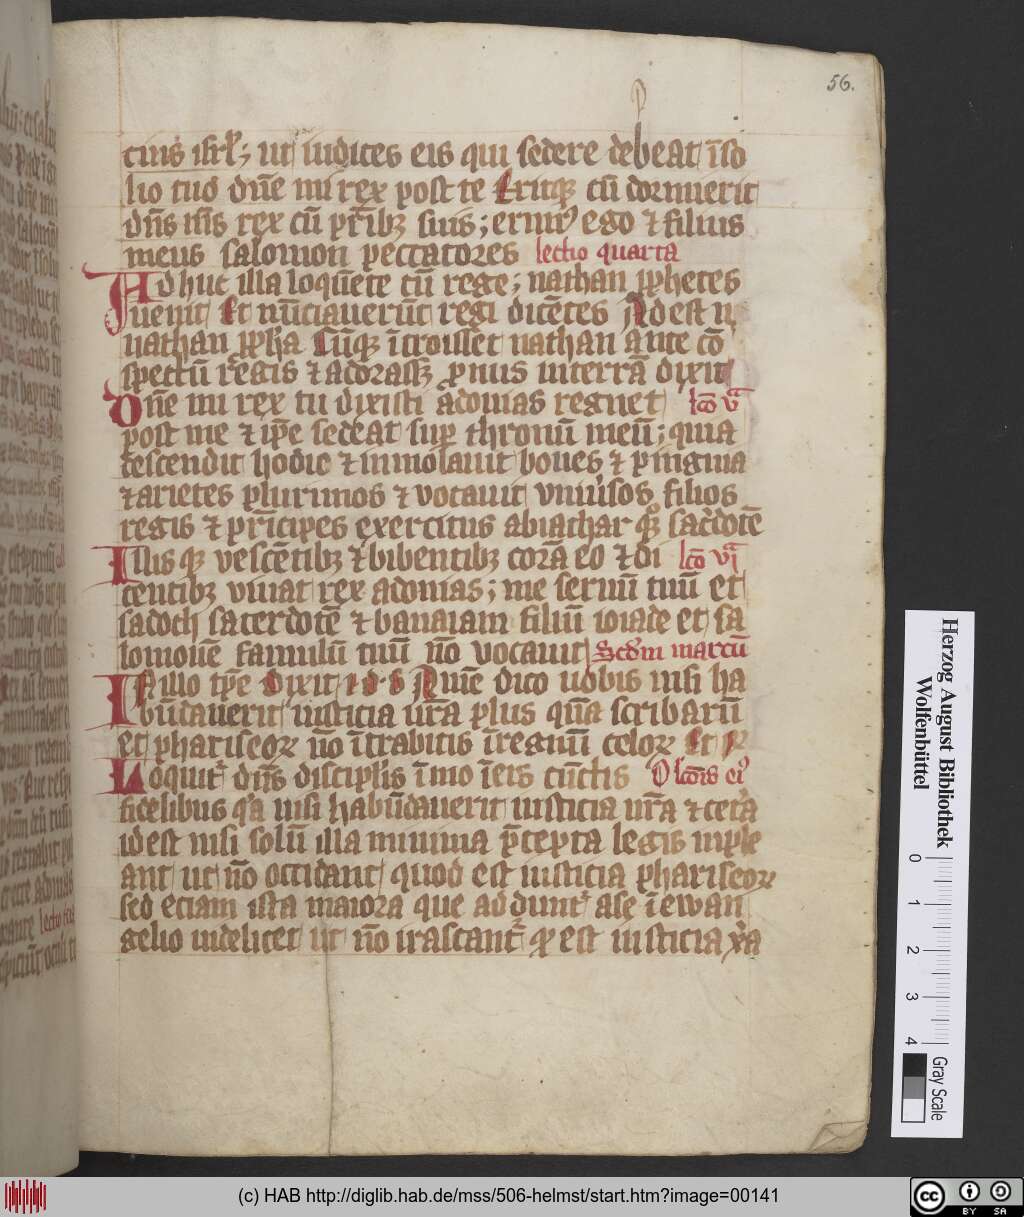 56.
cius isrl; ut iudices eis qui sedere debeat ī so
lio tuo dn̄e mi rex post te Eritq; cū dormierit
dn̄s m̄s rex cū pr̄ibꝫ suis; erimꝰ ego ⁊ filius
meus salomon peccatores lectio quarta
Ad huc illa loquēte cū rege; nathan ꝓphetes
uenit Et nūciauerūt regi dicētes Adest
nathan ꝓpha Cūq; ītroisset nathan ante cō
spectū regis ⁊ adorassꝫ ꝓnus in terrā dixit
Dn̄e mi rex tu dixisti adonias regnet lc̄o va
post me ⁊ ip̄e sedeat suꝑ thronū meū; quia
descendit hodie ⁊ inmolauit boues ⁊ pinguia
⁊ arietes plurimos ⁊ vocauit vniu'sos filios
regis ⁊ pr̄icipes exercitus abiathar qꝫ sac'dotē
Illis q; vescētibꝫ ⁊ bibentibꝫ corā eo ⁊ di lc̄o via
centibꝫ viuat rex adonias; me seruū tuū et
sadoch sacerdotē ⁊ banaiam filiū ioiade et sa
lomonē famulū tuū nō vocauit Scd'm marcū
In illo tp̄e Dixit i d s Amē dico uobis nisi ha
būdauerit iusticia ur̄a plus quā scribarū
et phariseoꝝ nō ītrabitis ī regnū celoꝝ Et R
Loquit' dn̄s discipl'is ī mo ī eis cūctis O lcōis eiꝰ
fidelibus q'a nisi habūdauerit iusticia ur̄a ⁊ cet'a
id est nisi solū illa minima p̄cepta legis inple
ant ut nō occidant quod est iusticia phariseoꝝ
sed eciam ista maiora que addunt' a se ī ewan
gelio uidelicet ut nō irascant' qđ est iusticia x̄a
Herzog August Bibliothek
Wolfenbüttel
0 1 2 3 4
Gray Scale
(c) HAB http://diglib.hab.de/mss/506-helmst/start.htm?image=00141
cc BY SA